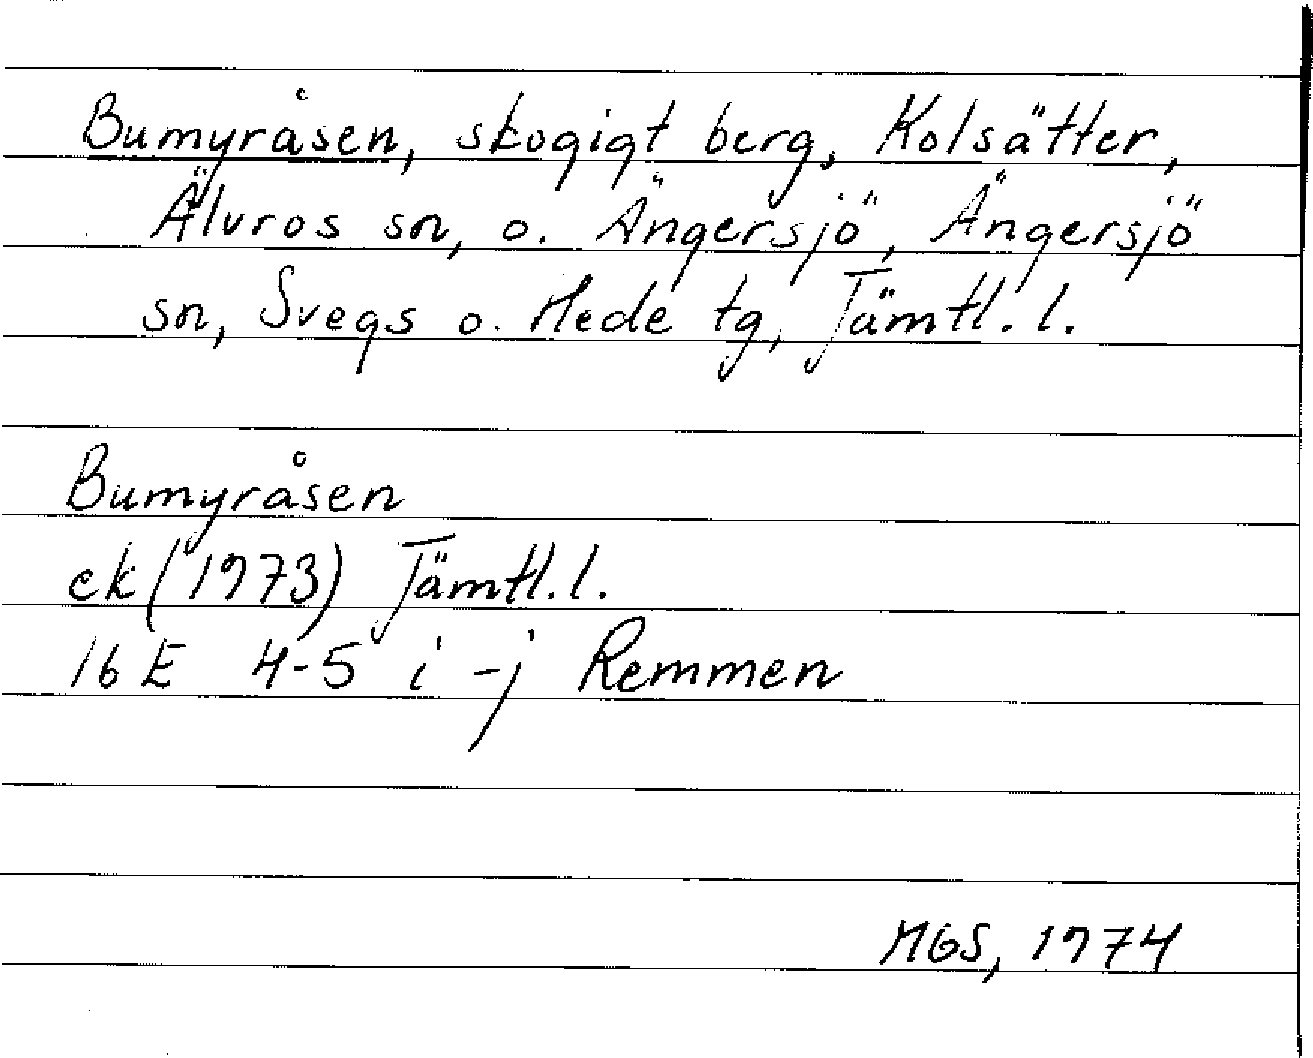 Bumyråsen, skogigt berg, Kolsätter,
Älvros sn, o. Ängersjö, Ängersjö
sn, Svegs o. Hede tg, Jämtl. l.
Bumyråsen
ek (1973) Jämtl. l.
16 E 4-5 i -j Remmen
MGS, 1974